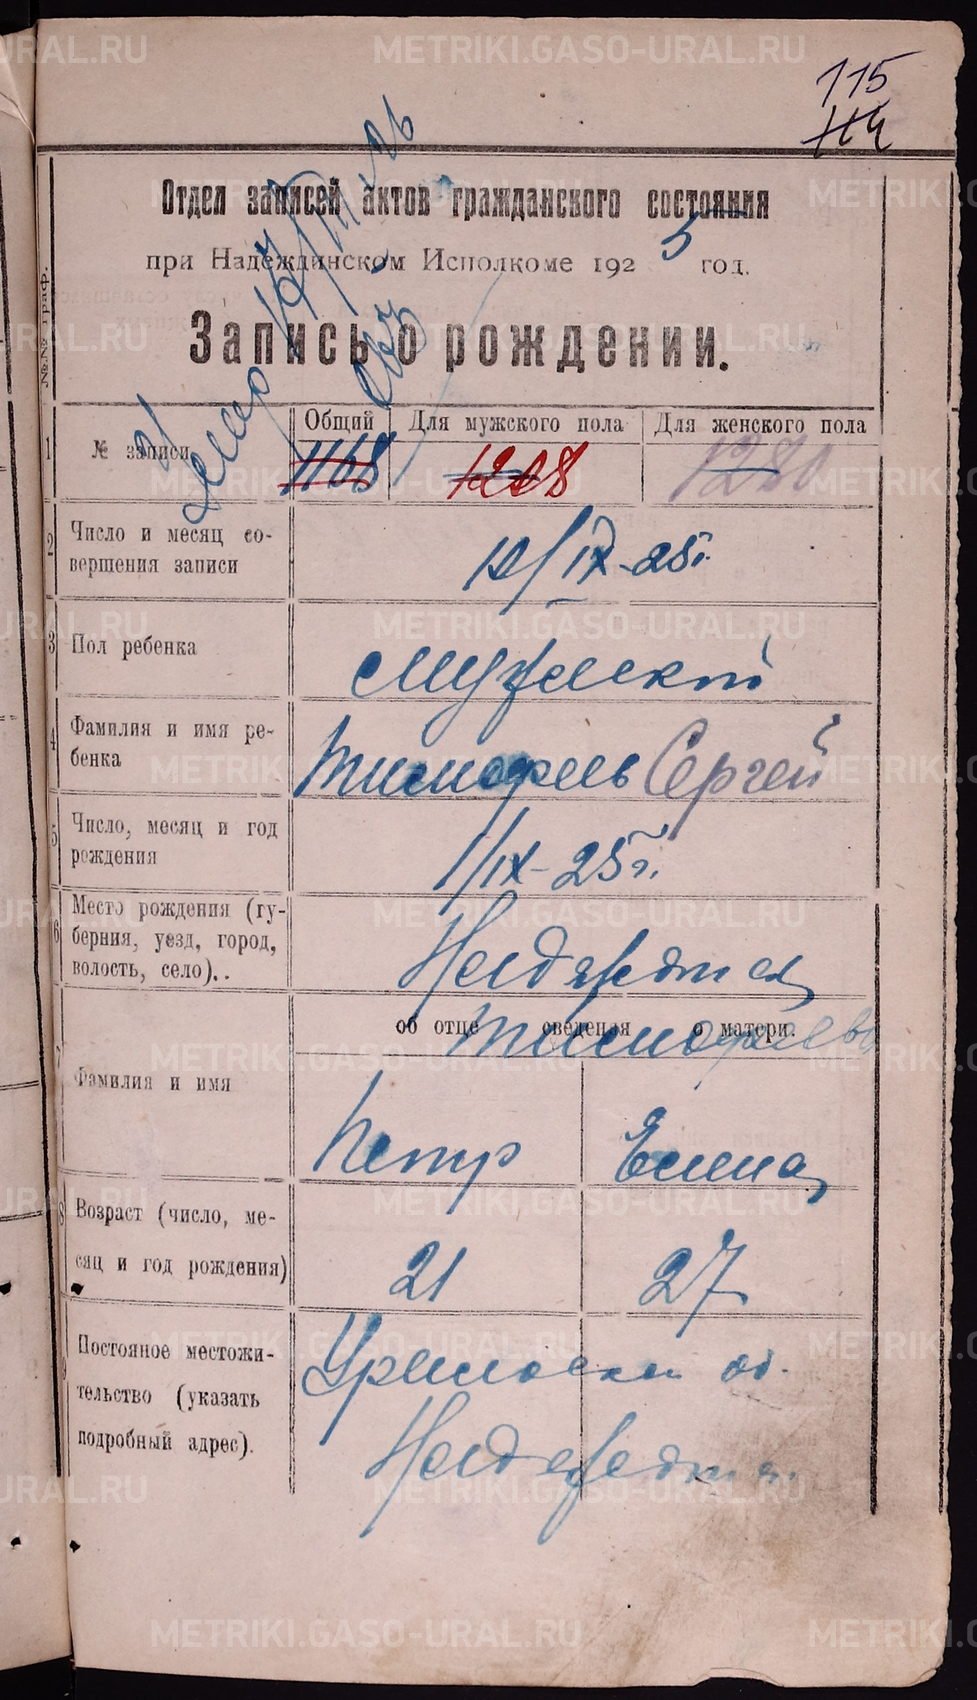 115
114
Отдел записей актов гражданского состояния
при Надеждинском Исполкоме 1925 год.
Запись о рождении.
№№ граф.
1
№ записи
Общий
Для мужского пола
Для женского пола
1168
1208
1280
2
Число и месяц со-
вершения записи
12/IX-25г.
3
Пол ребенка
Мужской
4
Фамилия и имя ре-
бенка
Тимофеев Сергей
5
Число, месяц и год
рождения
1/IX-25г.
6
Место рождения (гу-
берния, уезд, город,
волость, село)..
об отце сведения о матери.
Тимофеевы
Фамилия и имя
Петр
Елена
8
Возраст (число, ме-
сяц и год рождения)
21
27
Постояное местожи-
тельство (указать
подробный адрес).
об.
METRIKI.GASO-URAL.RU